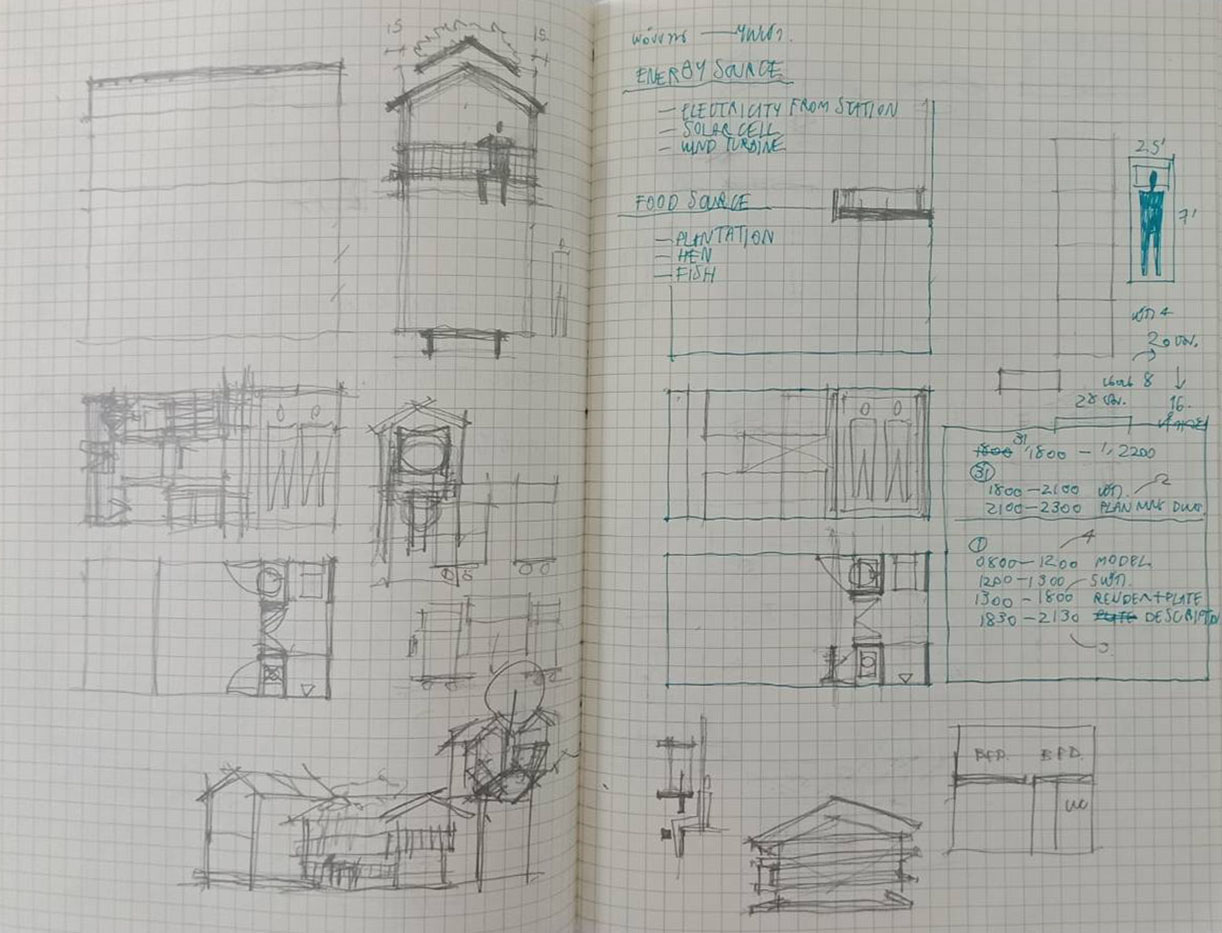 15 15
ENERGY SOURCE
— ELECTRICITY FROM STATION
— SOLAR CELL
— WIND TURBINE
FOOD SOURCE
— PLANTATION
— HEN
— FISH
2.5'
7'
4
20
8
28
16.
1800 31 1800 — 2200
31
1800 — 2100
2100 — 2300 PLAN
1
4
0800 — 1200 MODEL
1200 — 1300
1300 — 1800 RENDER + PLATE
1830 — 2130 PLATE
BED. BED.
WC